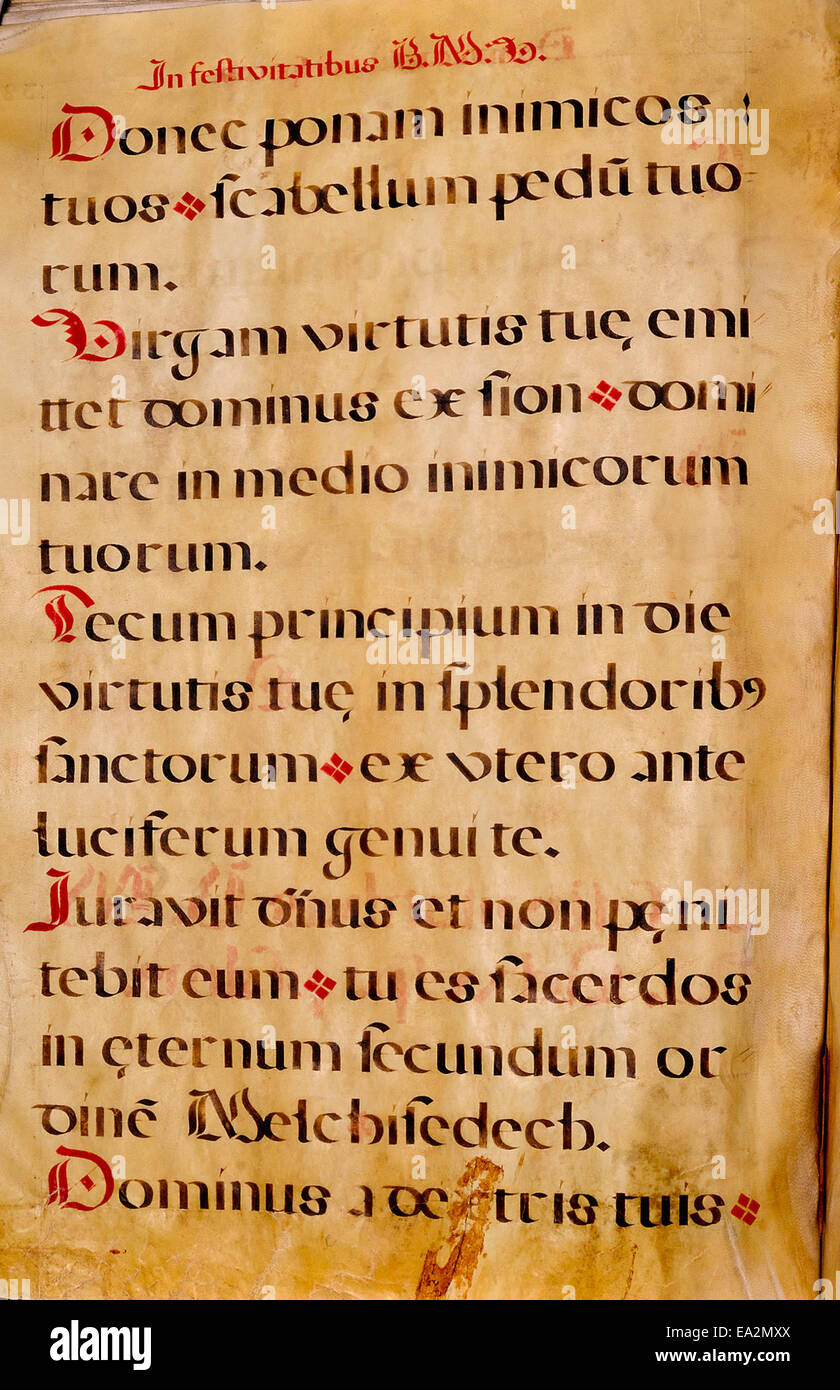 In festivitatibus B.M.V.
Donec ponam inimicos
tuos ❖ ſcabellum pedū tuo
rum.
Virgam virtutis tuę emi
ttet dominus ex ſion ❖ domi
nare in medio inimicorum
tuorum.
Tecum principium in die
virtutis tuę in ſplendoribꝰ
ſanctorum ❖ ex vtero ante
luciferum genui te.
Juravit dn̄us et non pęni
tebit eum ❖ tu es ſacerdos
in ęternum ſecundum or
dinē Melchiſedech.
Dominus a de tris tuis ❖
alamy
Image ID: EA2MXX
www.alamy.com